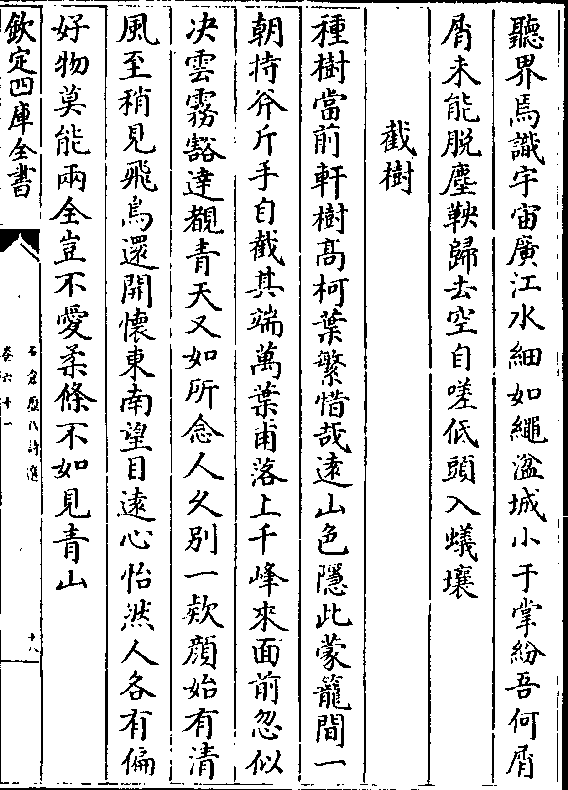 聽界焉識宇宙廣江水細如繩湓城小于掌紛吾何屑
屑未能脫塵鞅歸去空自嗟低頭入蟻壤
截樹
種樹當前軒樹髙柯葉繁惜哉逺山色隱此蒙籠間一
朝持斧斤手自截其端萬葉甫落上千峰來面前忽似
决雲霧豁達覩青天又如所念人久别一欵顔始有清
風至稍見飛鳥還開懷東南望目逺心怡然人各有偏
好物莫能兩全豈不愛柔條不如見青山
欽定四庫全書
石倉歴代詩選
卷六十一
十八